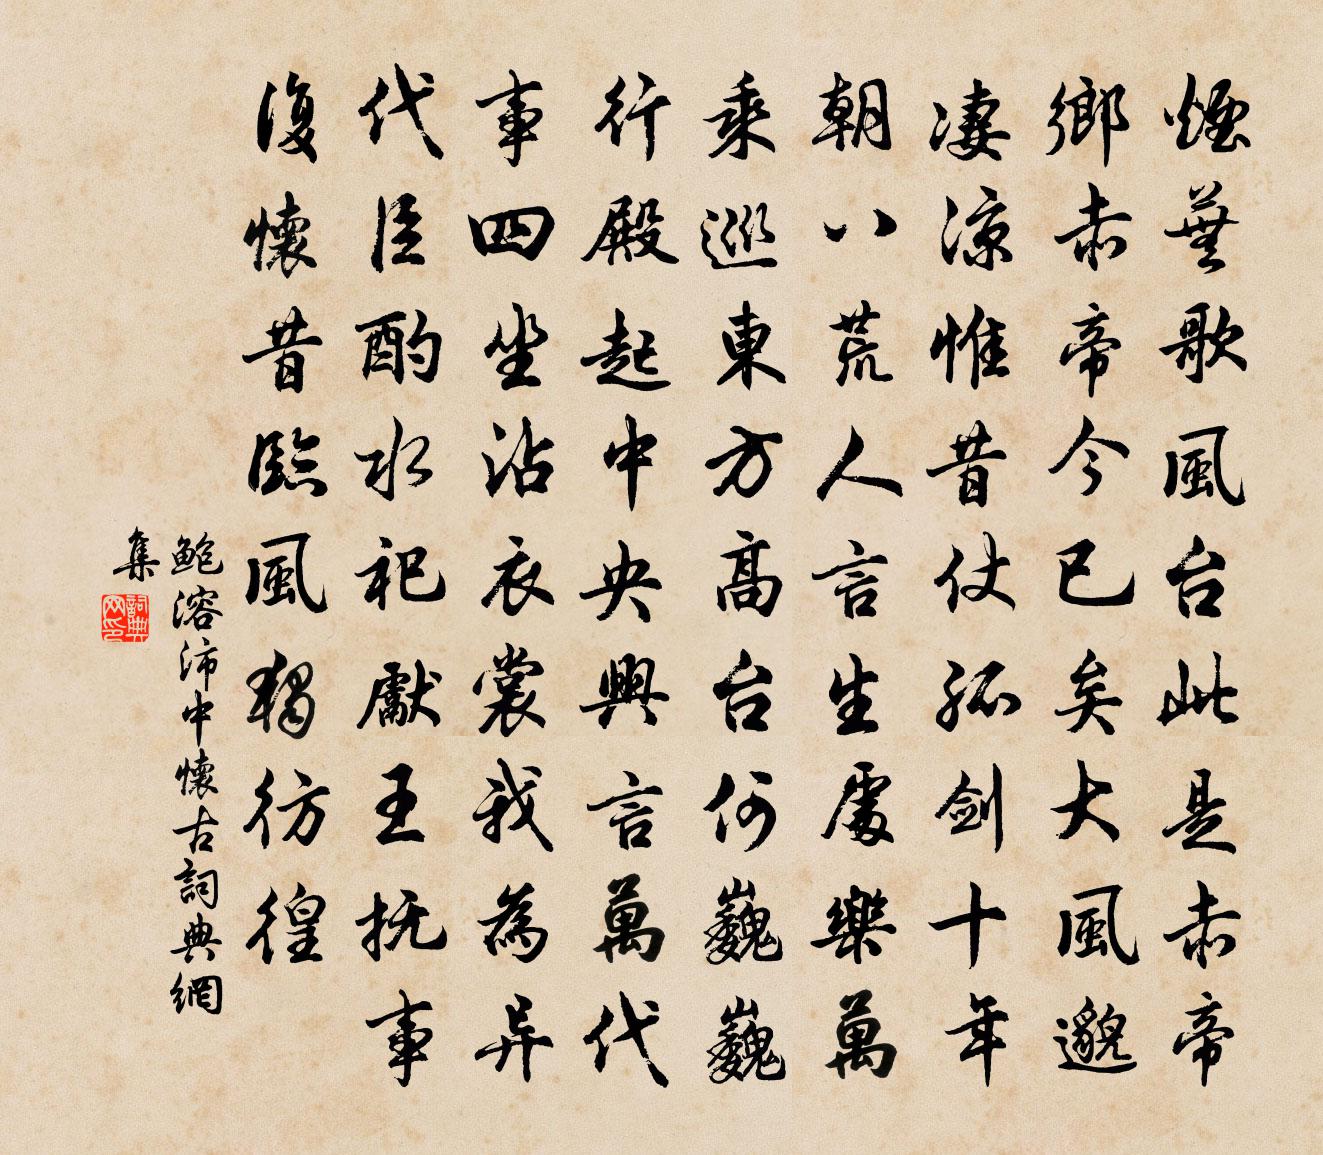 煙蕪歌風台此是赤帝
鄉赤帝今已矣大風邈
淒涼惟昔仗孤劍十年
朝八荒人言生處樂萬
乘巡東方高台何巍巍
行殿起中央興言萬代
事四坐沾衣裳我為异
代臣酌水祀獻王抚事
復懷昔臨風獨彷徨
鮑溶沛中懷古詞典網
集
詞典网印